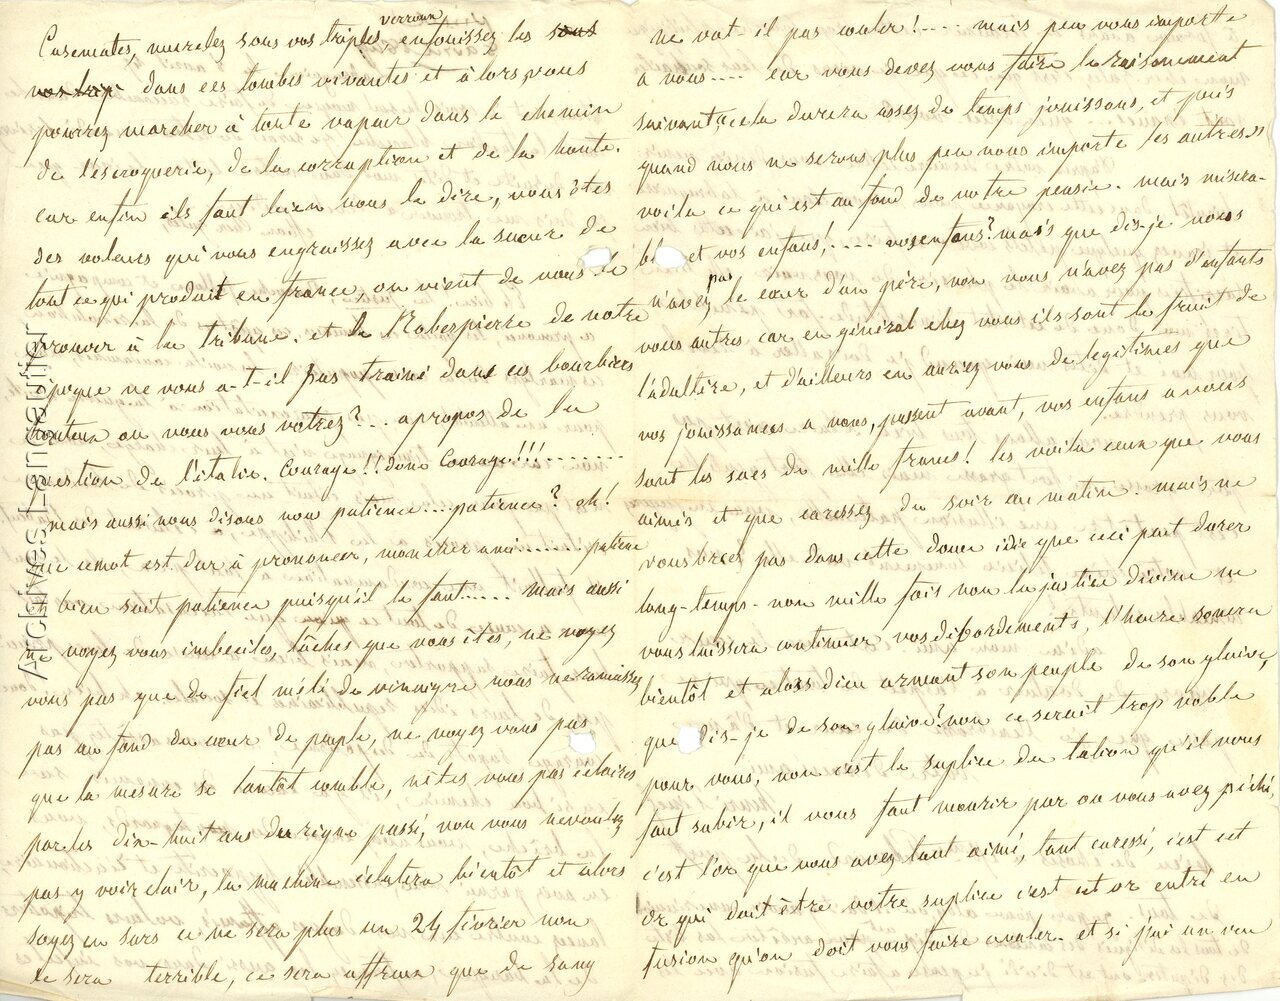 Casemates, murelez sous vos triples verroux, enfouissez les sous
vos trip dans ces tombes vivantes et alors, vous
pourrez marcher à toute vapeur dans le chemin
de l'escroquerie, de la corruption et de la honte.
car enfin ils faut bien vous le dire, vous êtes
des voleurs qui vous engraissez avec la sueur de
tout ce qui produit en france, on vient de vous le
prouver à la tribune. et le Roberpierre de notre
époque ne vous a-t-il pas trainé dans ces bourbiers
honteux ou vous vous vôtrez?... apropos de la
question de l'italie. Courage!! donc Courage!!!........
mais aussi nous disons nou patience...patience? oh!
que ce mot est dur à prononcer, mon cher ami....... patience
bien soit patience puisqu'il le faut..... mais aussi
ne voyez vous imbeciles, lâches que vous êtes, ne voyez
vous pas que de fiel mélé de vinaigre vous ne ramassez
pas au fond du cœur de peuple, ne voyez vous pas
que la mesure se tantôt comble, nêtes vous pas éclairés
par les dix-huit ans du règne passé, non vous ne voulez
pas y voir clair, la machine éclatera bientôt et alors
soyez en surs ce ne sera plus un 24 février non
le sera terrible, ce sera affreux que de sang
ne vat-il pas couler!.... mais peu vous importe
a vous.... car vous devez vous faire le raisonement
suivant, «cela durera assez de temps jouissons, et puis
quand nous ne serons plus peu nous importe les autres»
voila ce qui est au fond de votre pensée. mais misera-
bles et vos enfans!..... vos enfans? mais que dis-je vous
n'avez pas le cœur d'un père, non vous n'avez pas d'enfants
vous autres car en général chez vous ils sont le fruit de
l'adultère, et d'ailleurs en auriez vous de legitimes que
vos jouissances a vous, passent avant, vos enfans a vous
sont les sacs de mille francs! les voila ceux que vous
aimés et que caressez du soir au matin. mais ne
vous brcez pas dans cette douce idée que ceci peut durer
long-temps. non mille fois non la justice divine ne
vous laissera continuer vos débordements, l'heure sonnera
bientôt et alors dieu armant son peuple de son glaive,
que dis-je de son glaive? non ce serait trop noble
pour vous, non c'est le suplice du talion qu'il vous
faut subir, il vous faut mourir par ou vous avez péché,
c'est l'or que vous avez tant aimé, tant caressé, c'est cet
or qui doit être votre suplice c'est cet or entré en
fusion qu'on doit vous faire avaler. et si j'ai un vœu
Archives Lengellier